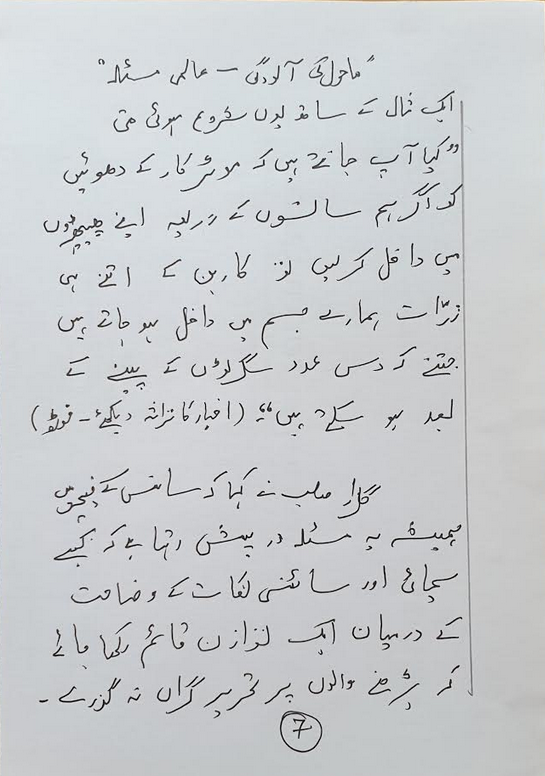 "ماحول کی آلودگی – عالمی مسئلہ"
ایک مثال کے ساتھ یوں شروع ہوئی تھی
"کیا آپ جانتے ہیں کہ موٹر کار کے دھوئیں
کو اگر ہم سانسوں کے ذریعہ اپنے پھیپھڑوں
میں داخل کرلیں تو کاربن کے اتنے ہی
ذرّات ہمارے جسم میں داخل ہو جاتے ہیں
جتنے کہ دس عدد سگریٹوں کے پینے کے
بعد ہو سکتے ہیں"۔ (اخبار کا تراشہ دیکھئے – فوٹو)
صاحب نے کہا کہ سائنس کے فیچر میں
ہمیشہ یہ مسئلہ درپیش رہتا ہے کہ کیسے
سچائی اور سائنسی نکات کے وضاحت
کے درمیان ایک توازن قائم رکھا جائے
کہ پڑھنے والوں پر تحریر گراں نہ گذرے۔
7